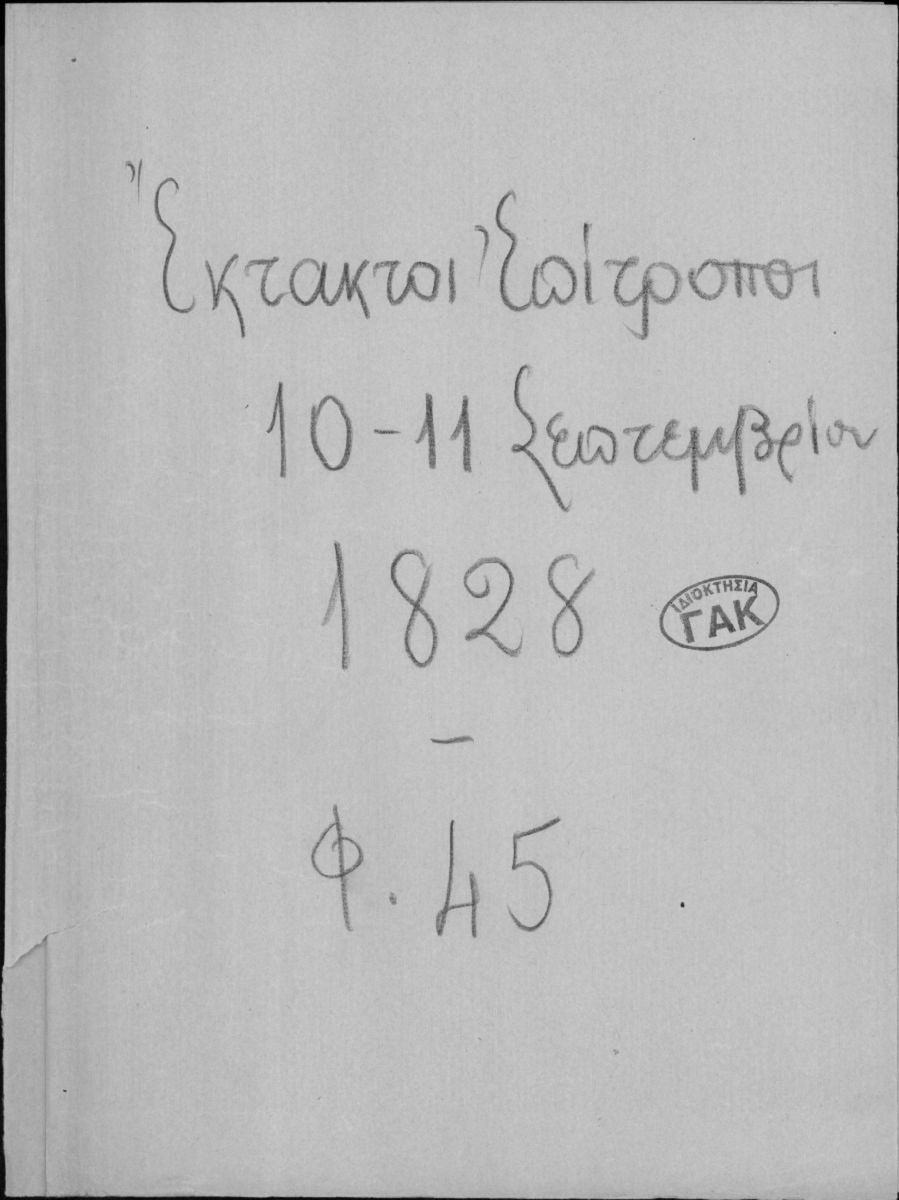 Ἔκτακτοι Ἐπίτροποι
10-11 Σεπτεμβρίου
1828
ΙΔΙΟΚΤΗΣΙΑ
ΓΑΚ
–
Φ. 45